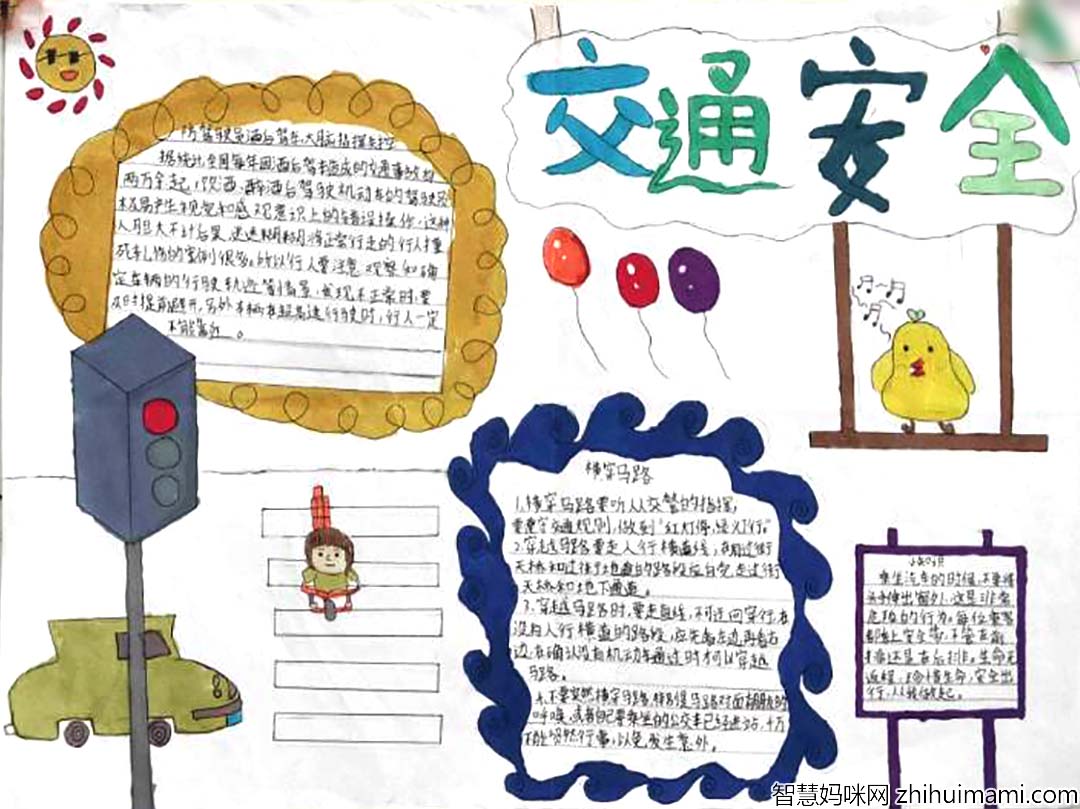 交通安全
防驾驶员酒后驾车,大脑指挥失控
据统计,全国每年因酒后驾车造成的交通事故均
两万余起,饮酒、醉酒后驾驶机动车的驾驶员
极易产生视觉和感观意识上的错误操作,这种
人胆大不计后果,迷迷糊糊将正常行走的行人撞
死轧伤的案例很多。所以行人要注意观察和确
定车辆的行驶轨迹等情景,发现不正常时,要
及时提前避开,另外车辆在超高速行驶时,行人一定
不能靠近。
横穿马路
1.横穿马路要听从交警的指挥,
要遵守交通规则,做到“红灯停,绿灯行。”
2.穿越马路要走人行横道线,在有过街
天桥和过街地道的路段应自觉走过街
天桥和地下通道。
3.穿越马路时,要走直线,不可迂回穿行,在
没有人行横道的路段,应先看左边,再看右
边,在确认没有机动车通过时才可以穿越
马路。
4.不要突然横穿马路,特别是马路对面有朋友的
呼唤,或者自己要乘坐的公交车已经进站,千万
不能贸然行事,以免发生意外。
小知识
乘坐汽车的时候,不要将
头手伸出窗外,这是非常
危险的行为。每位乘客
都系上安全带,不管在前
排还是在后排。生命无
返程,珍惜生命,安全出
行,从我做起。
智慧妈咪网 zhihuimami.com